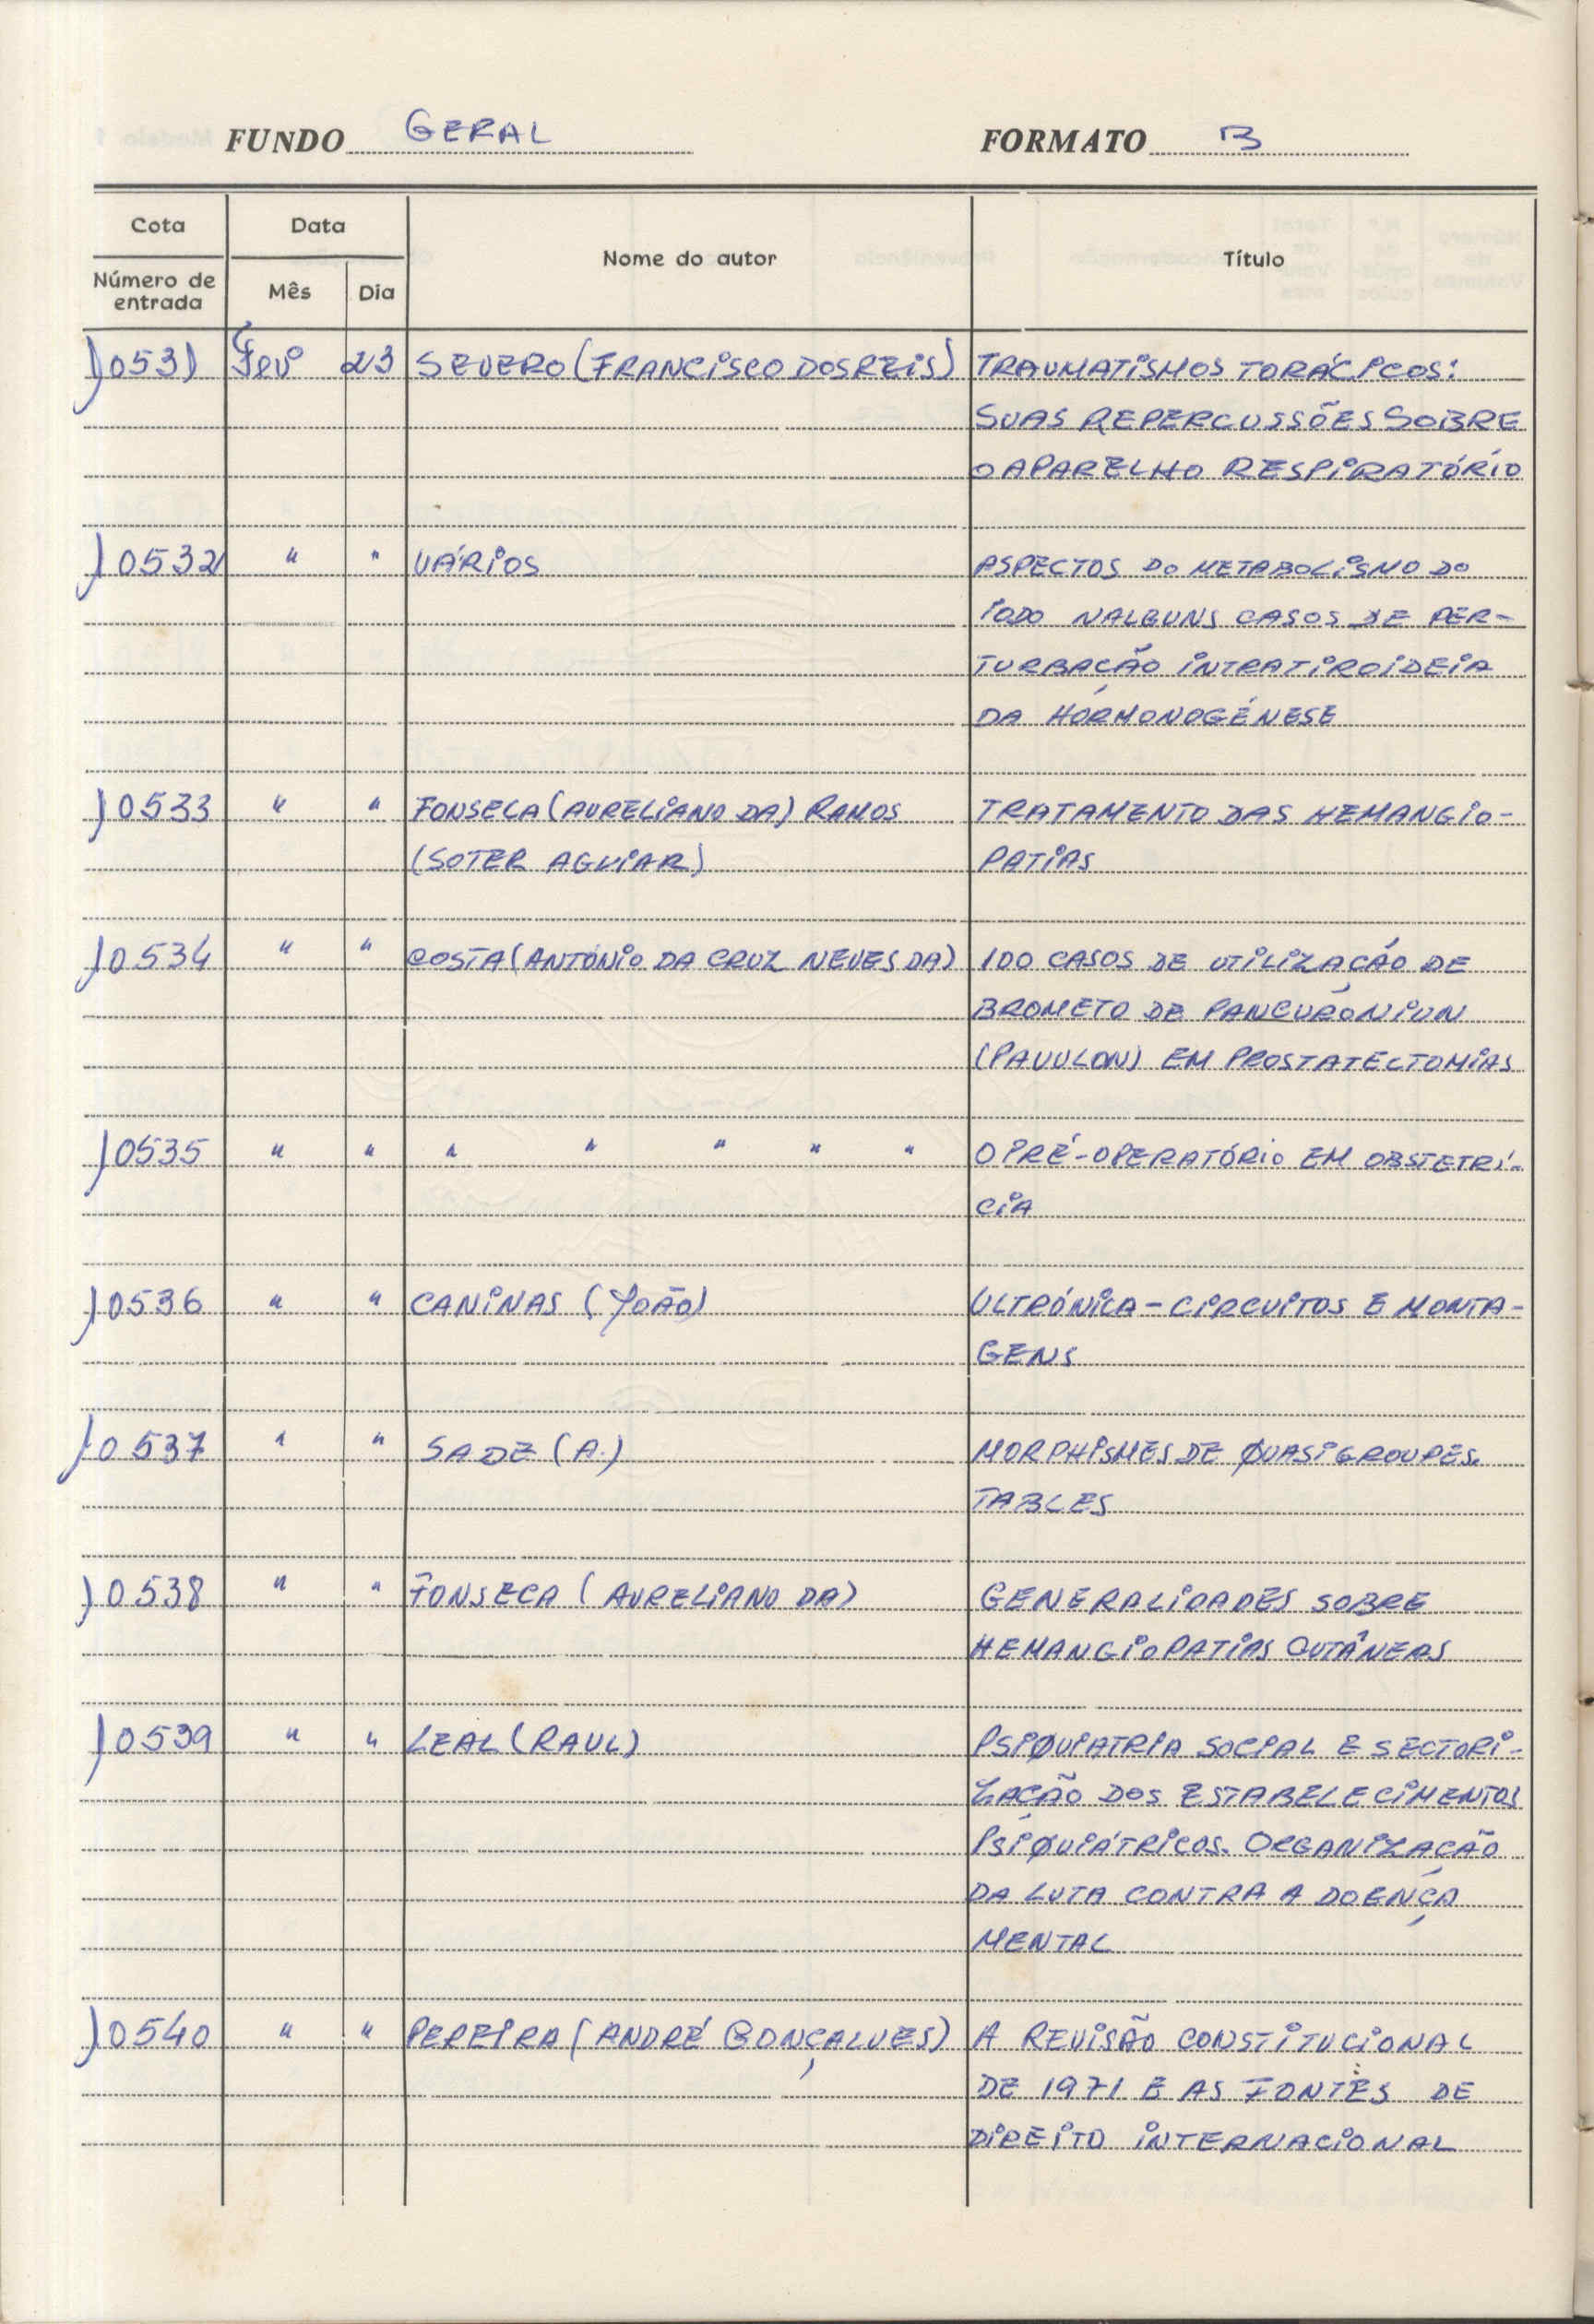 FUNDO GERAL FORMATO B
Cota Data Nome do autor Título
Número de entrada Mês Dia
10531 Fev 23 SEVERO (FRANCISCO DOS REIS) TRAUMATISMOS TORÁCICOS:
SUAS REPERCUSSÕES SOBRE
O APARELHO RESPIRATÓRIO
10532 " " VÁRIOS ASPECTOS DO METABOLISMO DO
IODO NALGUNS CASOS DE PER-
TURBAÇÃO INTRATIROIDEIA
DA HORMONOGÉNESE
10533 " " FONSECA (AURELIANO DA) RAMOS TRATAMENTO DAS HEMANGIO-
(SOTER AGUIAR) PATIAS
10534 " " COSTA (ANTÓNIO DA CRUZ NEVES DA) 100 CASOS DE UTILIZAÇÃO DE
BROMETO DE PANCURÓNIUN
(PAVULON) EM PROSTATECTOMIAS
10535 " " " " " " " O PRÉ-OPERATÓRIO EM OBSTETRÍ-
CIA
10536 " " CANINAS (JOÃO) ULTRÓNICA - CIRCUITOS E MONTA-
GENS
10537 " " SADE (A.) MORPHISMES DE QUASIGROUPES.
TABLES
10538 " " FONSECA (AURELIANO DA) GENERALIDADES SOBRE
HEMANGIOPATIAS CUTÂNEAS
10539 " " LEAL (RAUL) PSIQUIATRIA SOCIAL E SECTORI-
ZAÇÃO DOS ESTABELECIMENTOS
PSIQUIÁTRICOS. ORGANIZAÇÃO
DA LUTA CONTRA A DOENÇA
MENTAL
10540 " " PEREIRA (ANDRÉ GONÇALVES) A REVISÃO CONSTITUCIONAL
DE 1971 E AS FONTES DE
DIREITO INTERNACIONAL